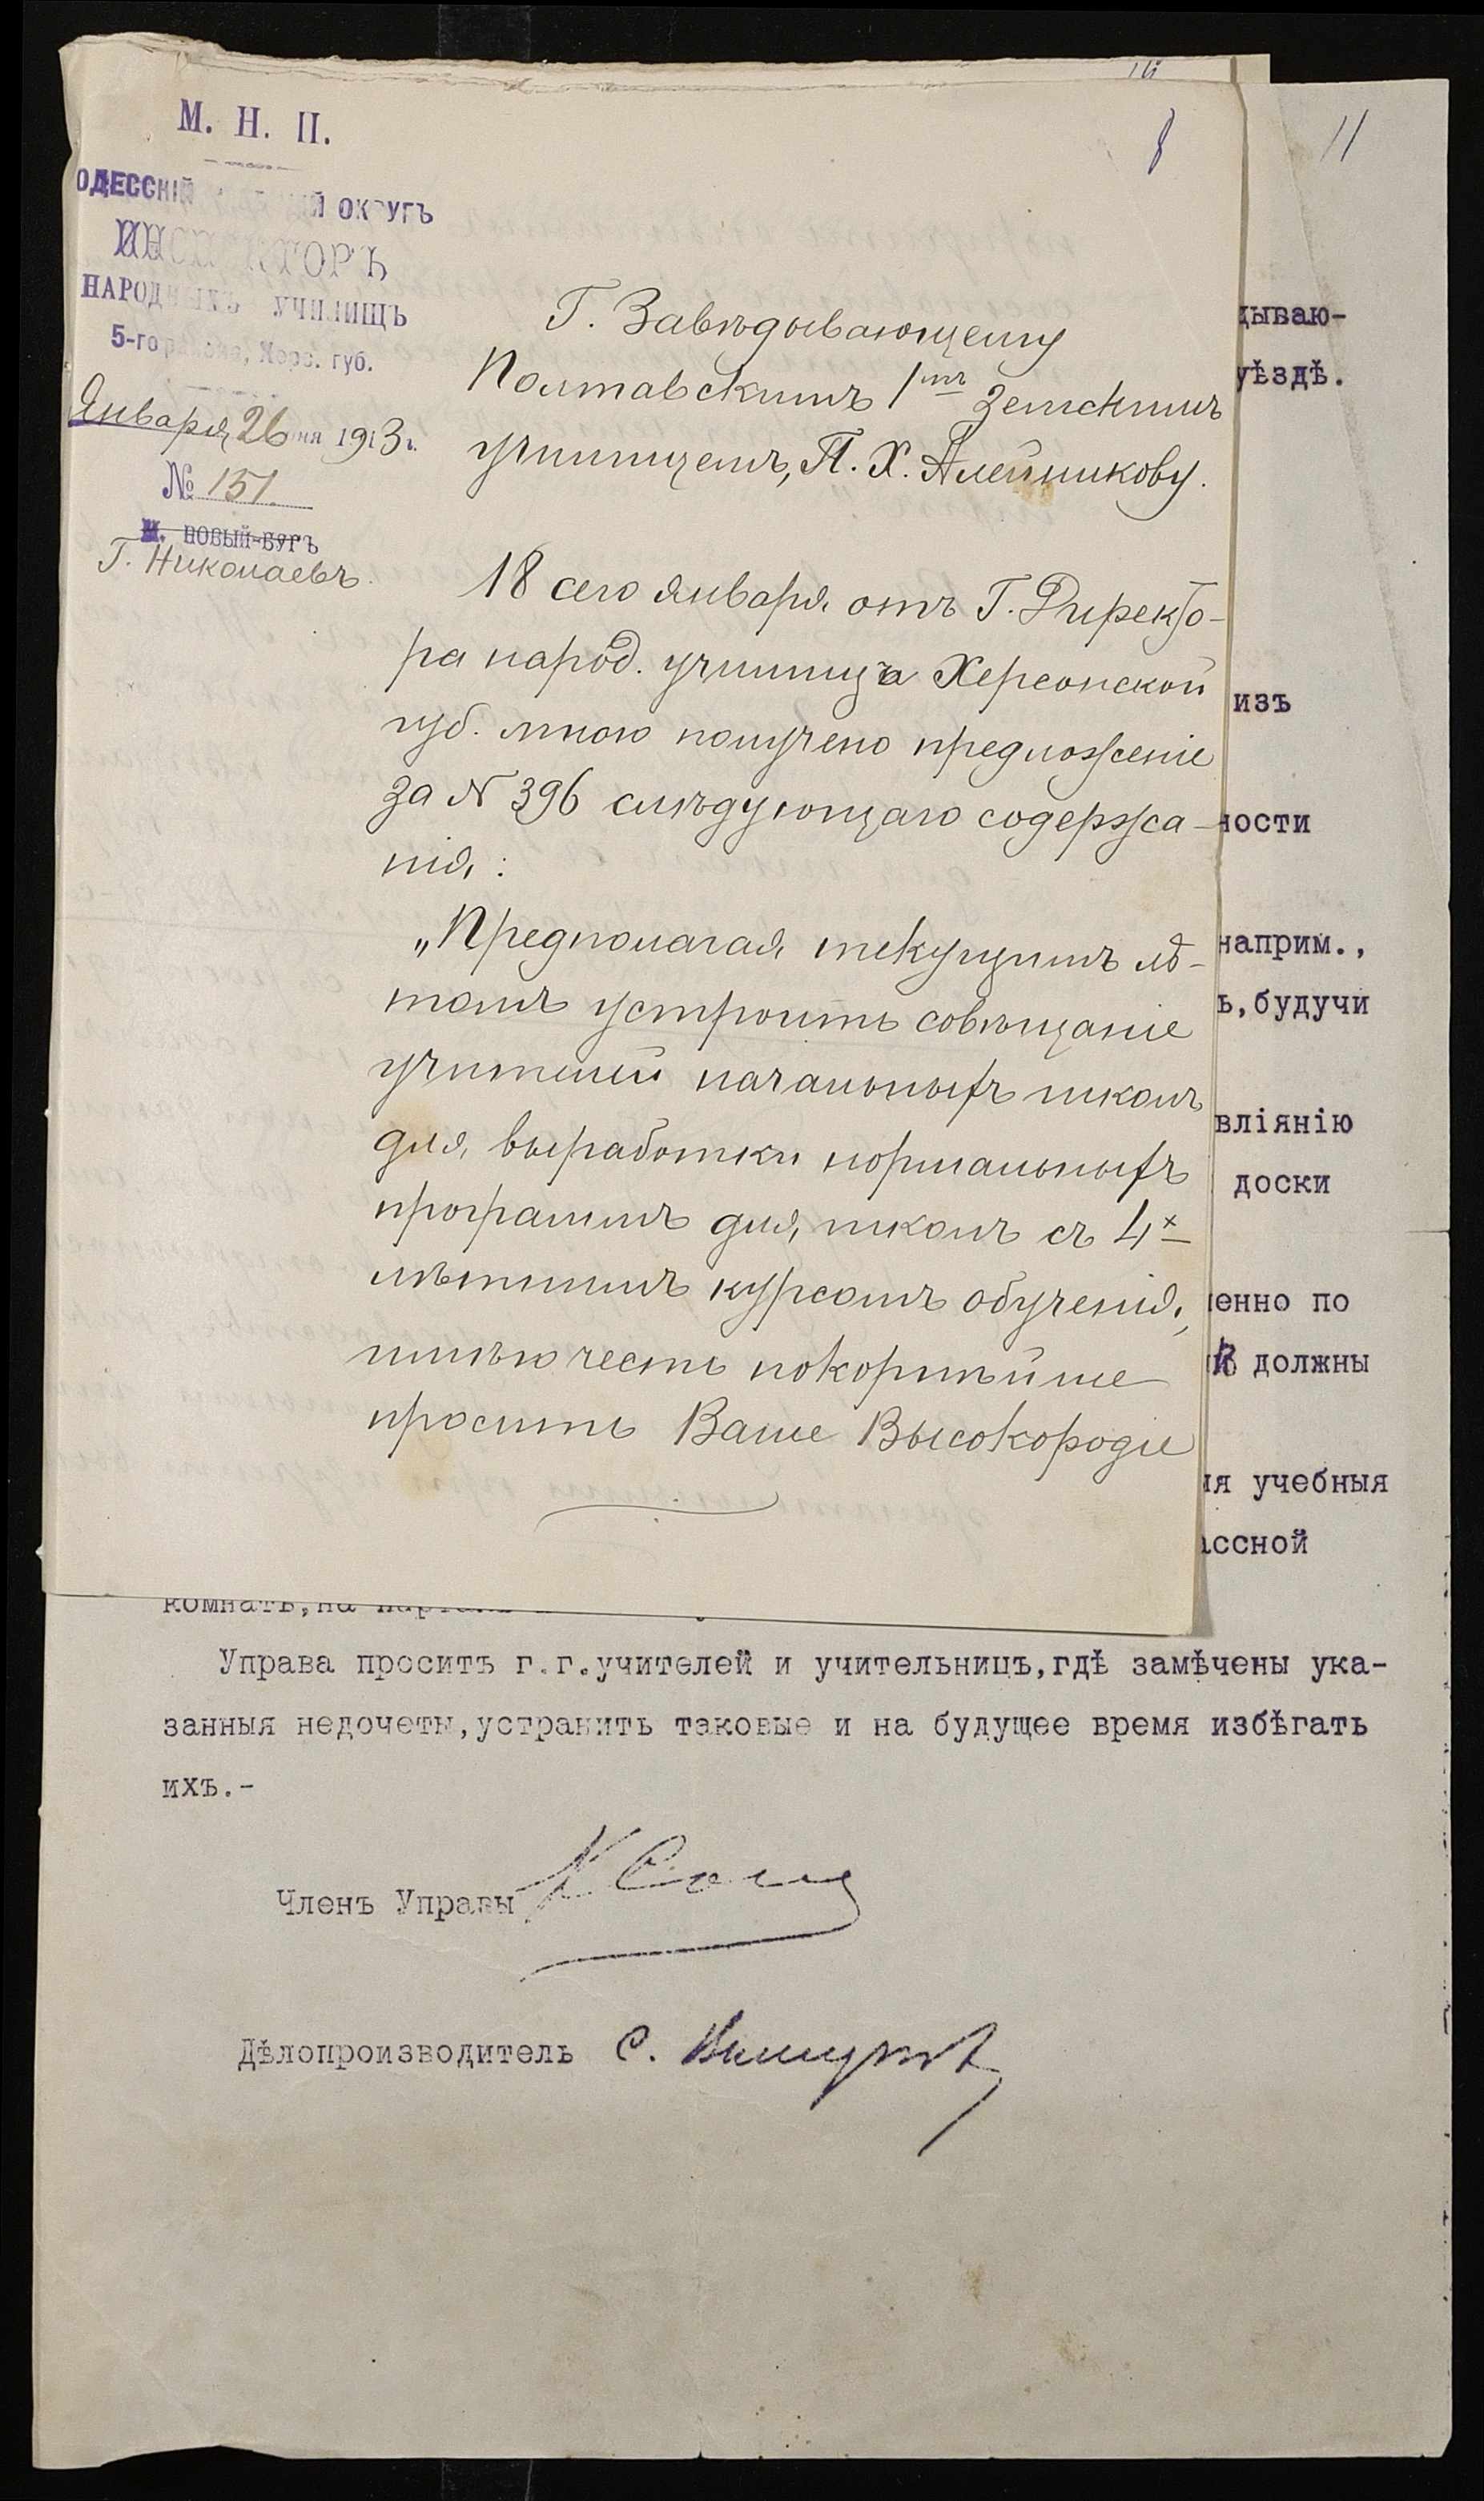 М. Н. П.
ОДЕССКІЙ УЧЕБНЫЙ ОКРУГЪ
ИНСПЕКТОРЪ
НАРОДНЫХЪ УЧИЛИЩЪ
5-го района, Херс. губ.
Января 26 дня 1913 г.
№ 151.
м. НОВЫЙ-БУГЪ
Г. Николаевъ.
8
11
Г. Завѣдывающему
Полтавскимъ 1мъ Земскимъ
училищемъ, П. Х. Алейникову.
18 сего января отъ Г. Директо-
ра народ. училищъ Херсонской
губ. мною получено предложеніе
за № 396 слѣдующаго содержа-
нія:
„Предполагая текущимъ лѣ-
томъ устроить совѣщаніе
учителей начальныхъ школъ
для выработки нормальныхъ
программъ для школъ съ 4х
лѣтнимъ курсомъ обученія,
имѣю честь покорнѣйше
просить Ваше Высокородіе
дываю-
уѣздѣ.
изъ
ности
наприм.,
ъ,будучи
вліянію
доски
енно по
должны
ія учебныя
ассной
комнатѣ,на партахъ
Управа проситъ г.г.учителей и учительницъ,гдѣ замѣчены ука-
занныя недочеты,устранить таковые и на будущее время избѣгать
ихъ.-
Членъ Управы
Дѣлопроизводитель С.